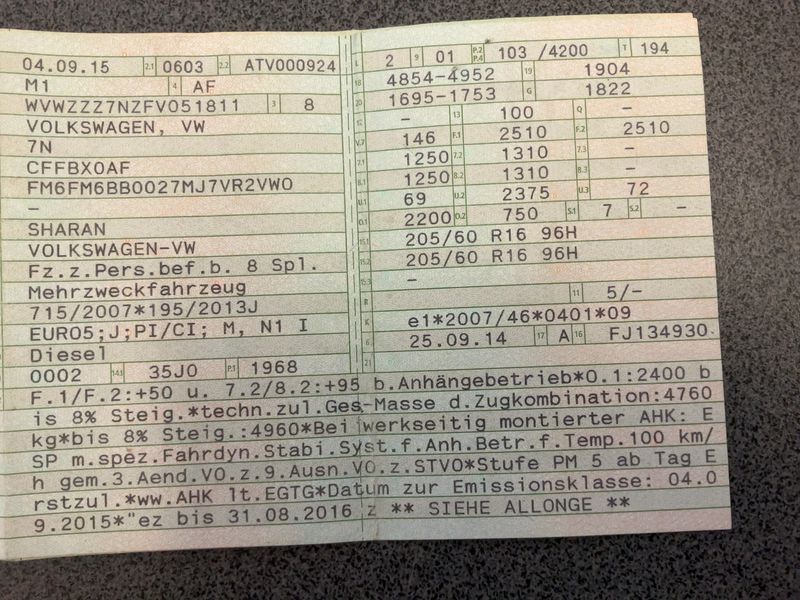 04.09.15 2.1 0603 2.2 ATV000924
M1 4 AF
WVWZZZ7NZFV051811 3 8
VOLKSWAGEN, VW
7N
CFFBX0AF
FM6FM6BB0027MJ7VR2VW0
–
SHARAN
VOLKSWAGEN-VW
Fz.z.Pers.bef.b. 8 Spl.
Mehrzweckfahrzeug
715/2007*195/2013J
EURO5;J;PI/CI; M, N1 I
Diesel
0002 14.1 35J0 P.1 1968
L 2 9 01 P.2 P.4 103 /4200 T 194
18 4854-4952 19 1904
20 1695-1753 G 1822
12 – 13 100 Q –
V.7 146 F.1 2510 F.2 2510
7.1 1250 7.2 1310 7.3 –
8.1 1250 8.2 1310 8.3 –
U.1 69 U.2 2375 U.3 72
O.1 2200 O.2 750 S.1 7 S.2 –
15.1 205/60 R16 96H
15.2 205/60 R16 96H
15.3 –
R 11 5/–
K e1*2007/46*0401*09
6 25.09.14 17 A 16 FJ134930
21
F.1/F.2:+50 u. 7.2/8.2:+95 b.Anhängebetrieb*O.1:2400 b
is 8% Steig.*techn.zul.Ges-Masse d.Zugkombination:4760
kg*bis 8% Steig.:4960*Bei werkseitig montierter AHK: E
SP m.spez.Fahrdyn.Stabi.Syst.f.Anh.Betr.f.Temp.100 km/
h gem.3.Aend.VO.z.9.Ausn.VO.z.STVO*Stufe PM 5 ab Tag E
rstzul.*ww.AHK lt.EGTG*Datum zur Emissionsklasse: 04.0
9.2015*"ez bis 31.08.2016 z ** SIEHE ALLONGE **